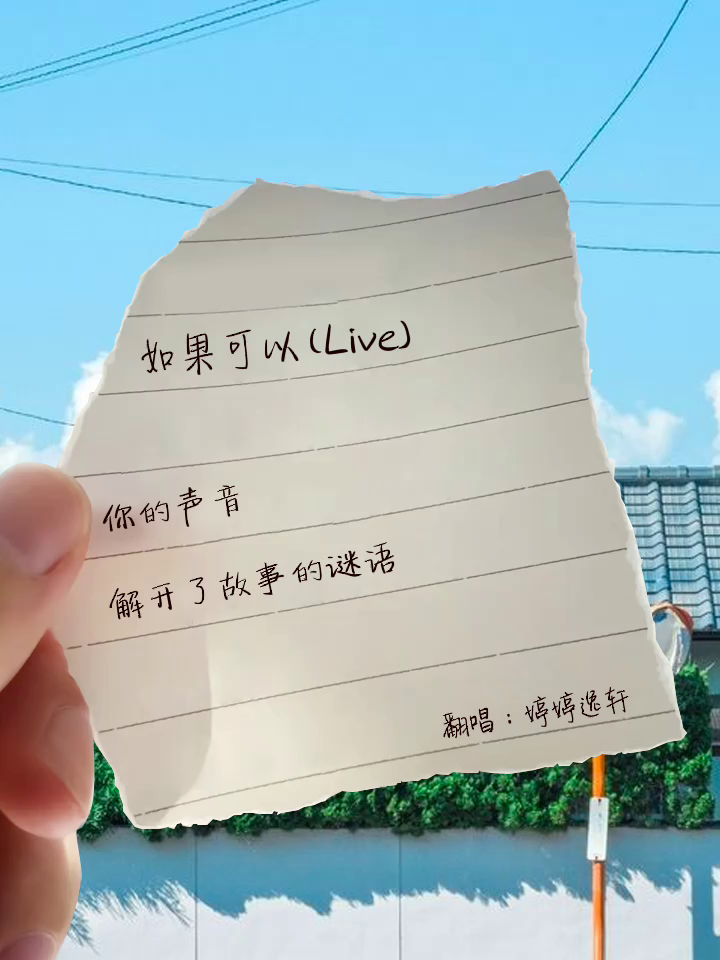 如果可以(Live)
你的声音
解开了故事的谜语
翻唱：婷婷逸轩